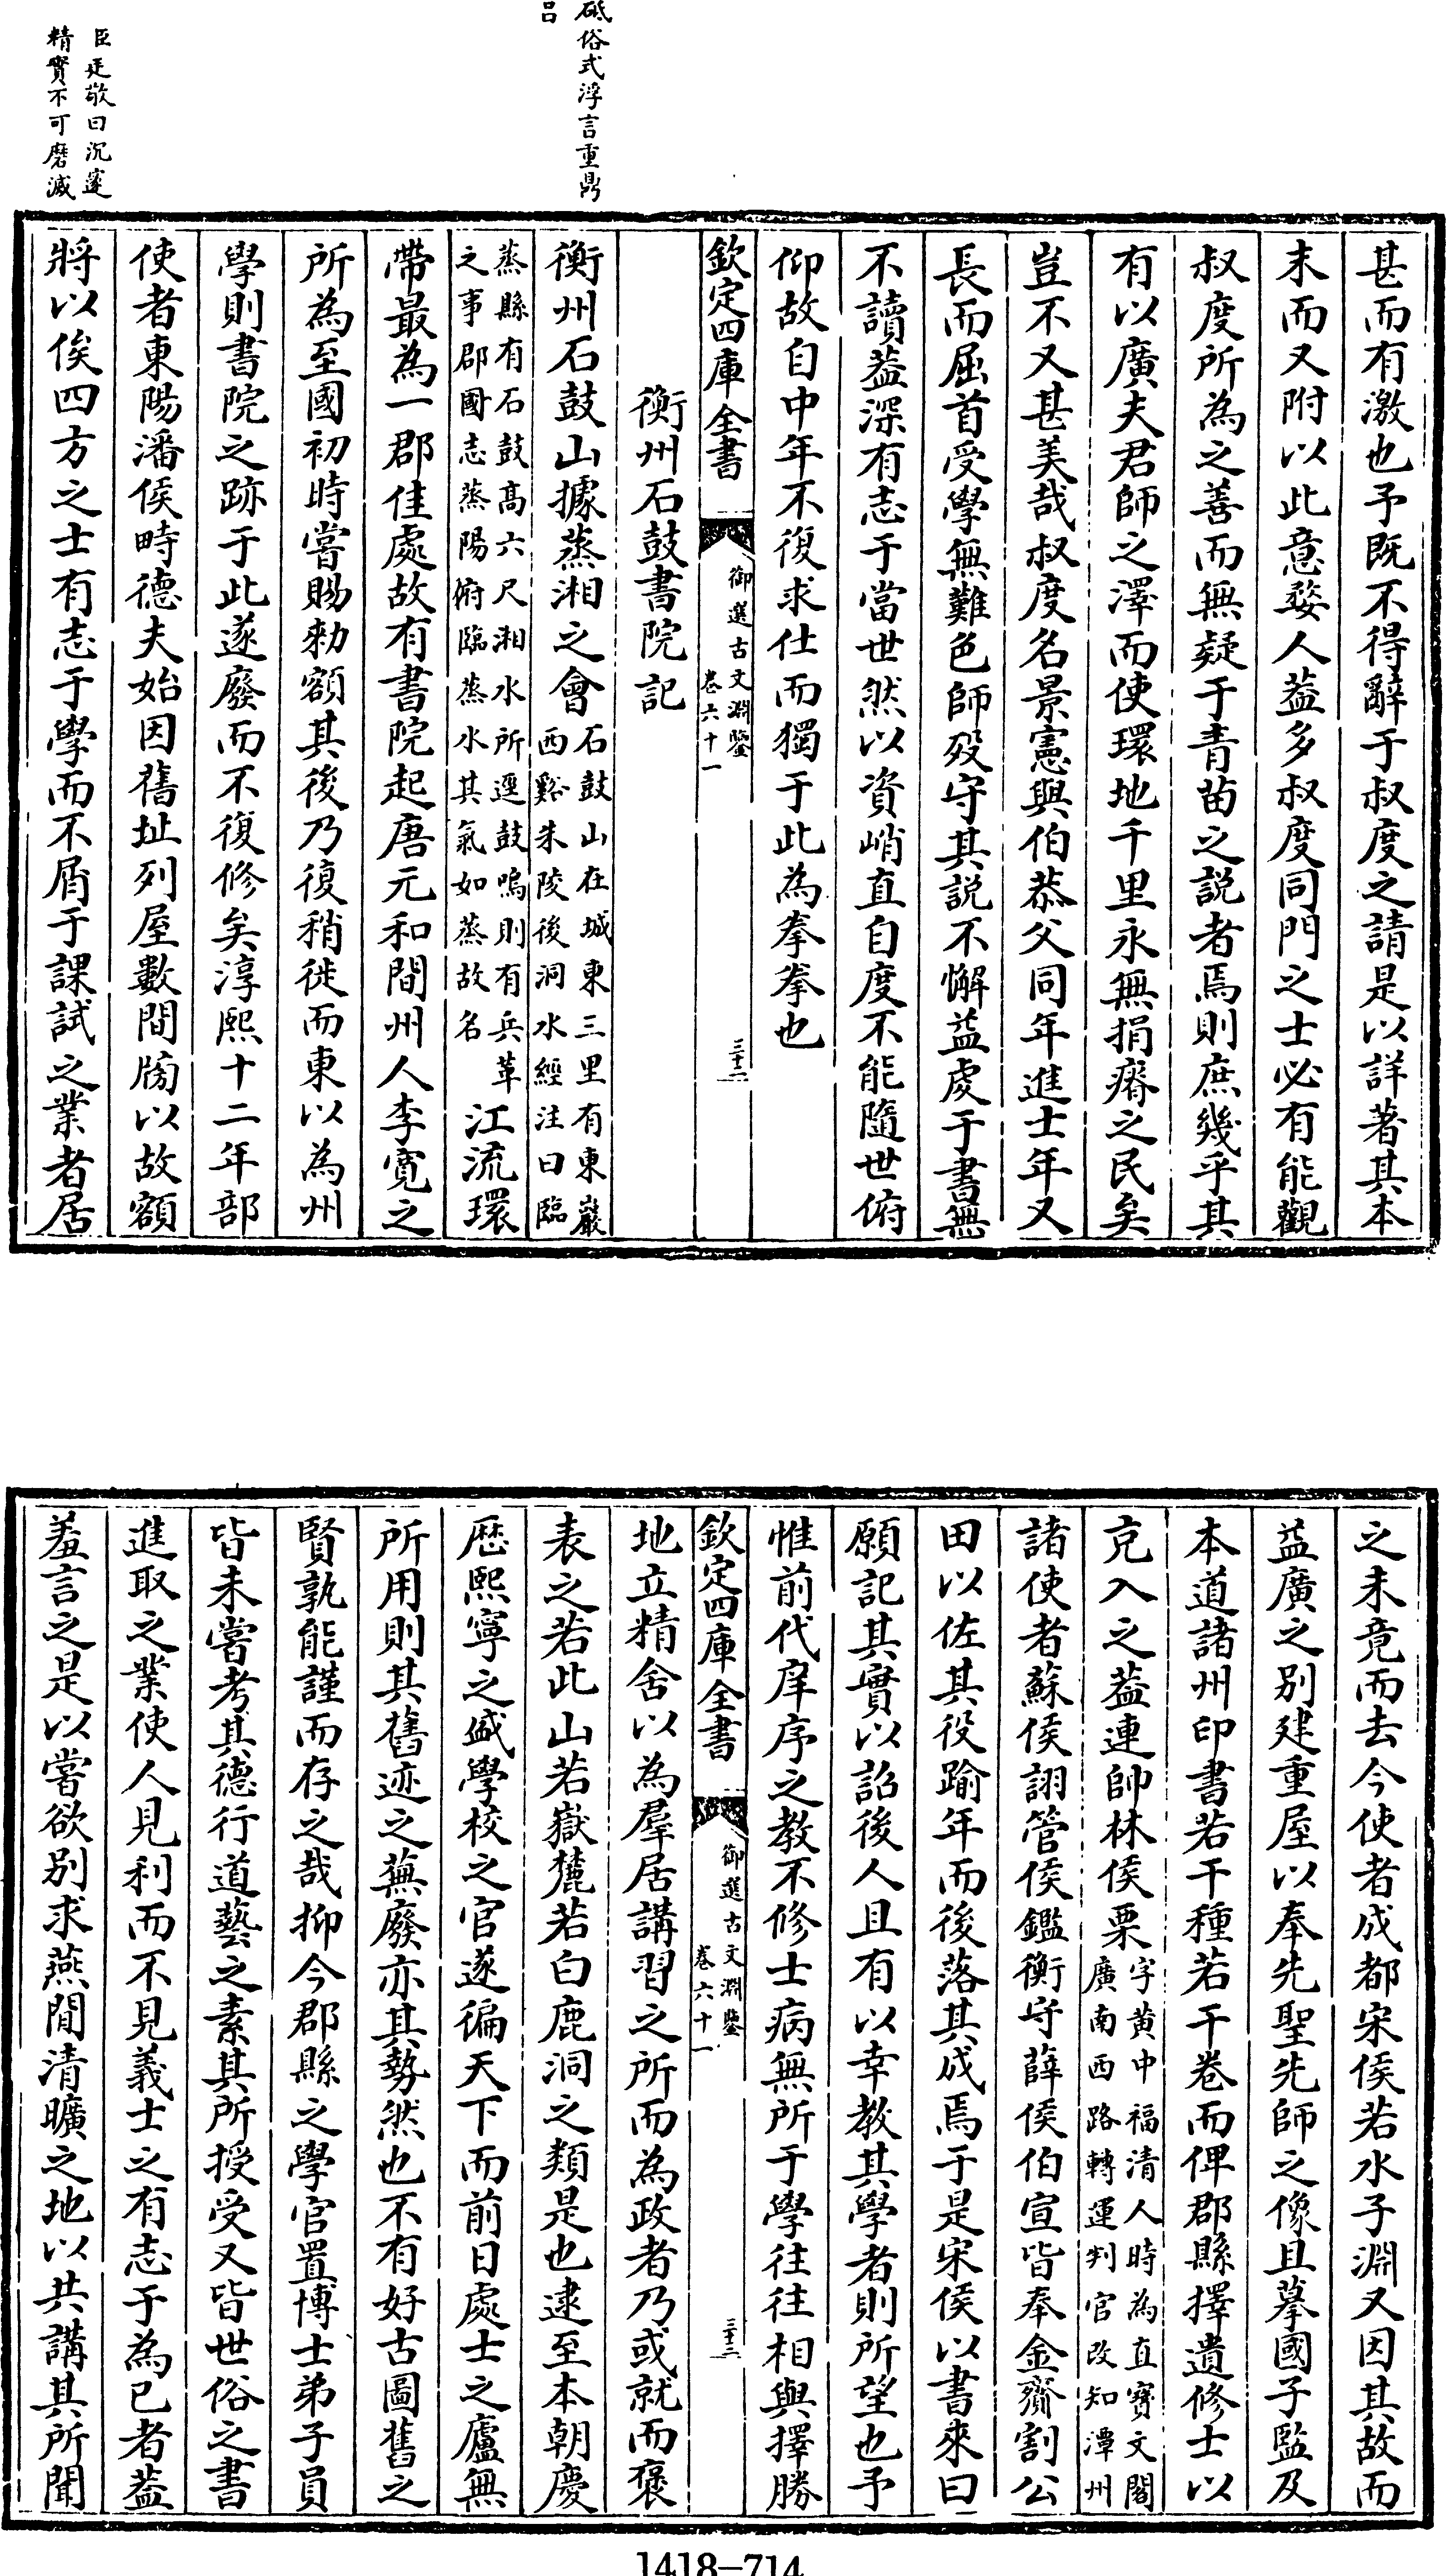 砥俗式浮言重鼎
呂
臣廷敬曰沉邃
精實不可磨滅
甚而有激也予既不得辭于叔度之請是以詳著其本
末而又附以此意婺人葢多叔度同門之士必有能觀
叔度所為之善而無疑于青苗之説者焉則庶幾乎其
有以廣夫君師之澤而使環地千里永無捐瘠之民矣
豈不又甚美哉叔度名景憲與伯恭父同年進士年又
長而屈首受學無難色師歿守其説不懈益虔于書無
不讀葢深有志于當世然以資峭直自度不能隨世俯
仰故自中年不復求仕而獨于此為拳拳也
欽定四庫全書
御選古文淵鑒
卷六十一
三十二
衡州石鼓書院記
衡州石鼓山據蒸湘之會
石鼓山在城東三里有東巖
西谿朱陵後洞水經注曰臨
蒸縣有石鼓高六尺湘水所逕鼓鳴則有兵革
之事郡國志蒸陽俯臨蒸水其氣如蒸故名
江流環
帶最為一郡佳處故有書院起唐元和間州人李寛之
所為至國初時嘗賜勑額其後乃復稍徙而東以為州
學則書院之跡于此遂廢而不復修矣淳熙十二年部
使者東陽潘侯畤德夫始因舊址列屋數間牓以故額
將以俟四方之士有志于學而不屑于課試之業者居
之未竟而去今使者成都宋侯若水子淵又因其故而
益廣之别建重屋以奉先聖先師之像且摹國子監及
本道諸州印書若干種若干卷而俾郡縣擇遺修士以
充入之葢連帥林侯栗
字黄中福清人時為直寶文閣
廣南西路轉運判官改知潭州
諸使者蘇侯詡管侯鑑衡守薛侯伯宣皆奉金齎割公
田以佐其役踰年而後落其成焉于是宋侯以書來曰
願記其實以詔後人且有以幸教其學者則所望也予
惟前代庠序之教不修士病無所于學往往相與擇勝
欽定四庫全書
御選古文淵鑒
卷六十一
三十三
地立精舍以為羣居講習之所而為政者乃或就而褒
表之若此山若嶽麓若白鹿洞之類是也逮至本朝慶
歴熙寧之盛學校之官遂徧天下而前日處士之廬無
所用則其舊迹之蕪廢亦其勢然也不有好古圖舊之
賢孰能謹而存之哉抑今郡縣之學官置博士弟子員
皆未嘗考其德行道藝之素其所授受又皆世俗之書
進取之業使人見利而不見義士之有志于為已者葢
羞言之是以嘗欲别求燕閒清曠之地以共講其所聞
1418-714